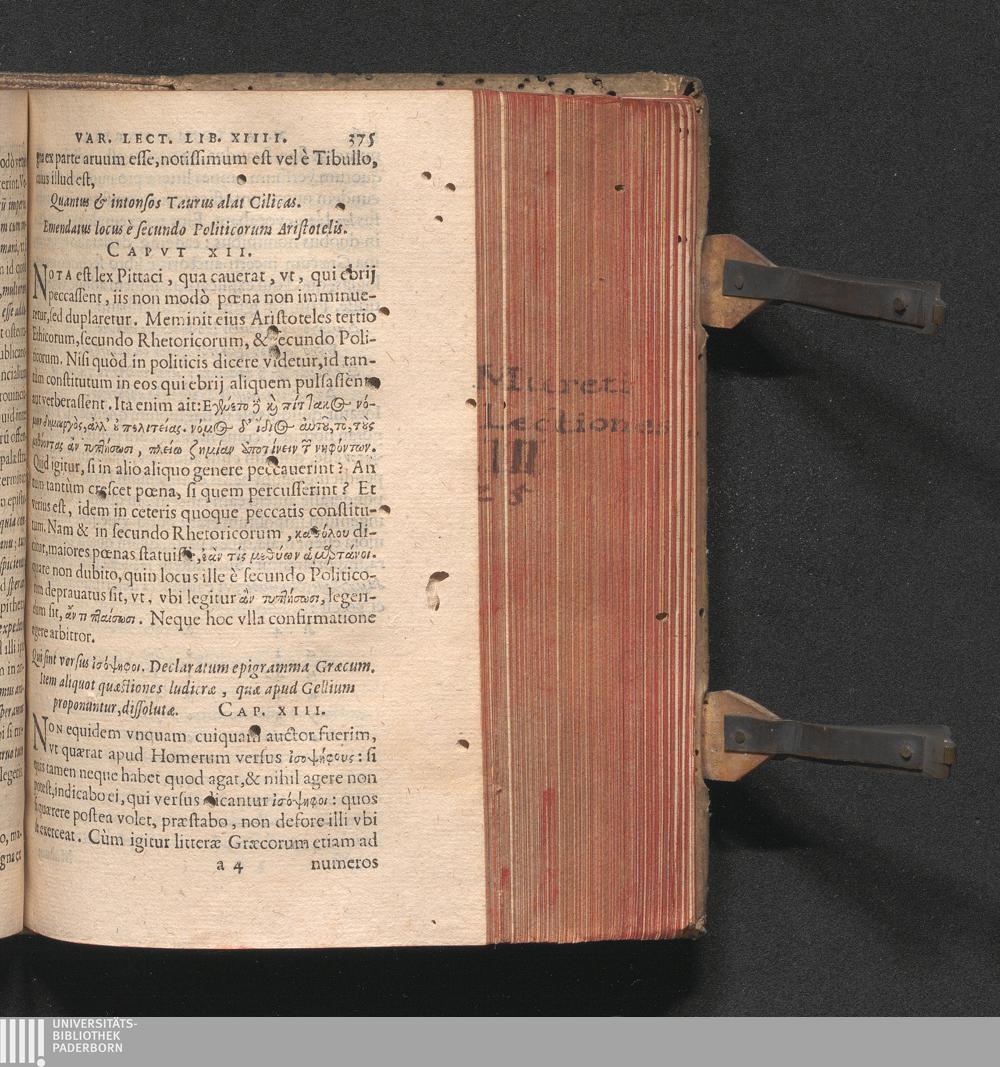 VAR. LECT. LIB. XIIII. 375
gna ex parte aruum esse, notissimum est vel è Tibullo,
cuius illud est,
Quantus & intonsos Taurus alat Cilicas.
Emendatus locus è secundo Politicorum Aristotelis.
CAPVT XII.
NOTA est lex Pittaci, qua cauerat, vt, qui ebrij
peccassent, iis non modò pœna non imminue-
retur, sed duplaretur. Meminit eius Aristoteles tertio
Ethicorum, secundo Rhetoricorum, & secundo Poli-
ticorum. Nisi quòd in politicis dicere videtur, id tan-
tùm constitutum in eos qui ebrij aliquem pulsassent
aut verberassent. Ita enim ait: Ἐγένετο δὲ καὶ πίττακος νό-
μων δημιουργὸς, ἀλλ' οὐ πολιτείας. νόμος δ' ἴδιος αὐτοῦ, τὸ, τοὺς
μεθύοντας ἂν τυπτήσωσι, πλείω ζημίαν ἀποτίνειν τῶν νηφόντων.
Quid igitur, si in alio aliquo genere peccauerint? An
tum tantùm crescet pœna, si quem percusserint? Et
verius est, idem in ceteris quoque peccatis constitu-
tum. Nam & in secundo Rhetoricorum, καθόλου di-
citur, maiores pœnas statuisse, ἐάν τις μεθύων ἁμαρτάνοι.
quare non dubito, quin locus ille è secundo Politico-
rum deprauatus sit, vt, vbi legitur ἂν τυπτήσωσι, legen-
dum sit, ἄν τι πταίσωσι. Neque hoc vlla confirmatione
egere arbitror.
Qui sint versus ἰσόψηφοι. Declaratum epigramma Græcum.
Item aliquot quæstiones ludicræ, quæ apud Gellium
proponuntur, dissolutæ. CAP. XIII.
NON equidem vnquam cuiquam auctor fuerim,
vt quærat apud Homerum versus ἰσοψήφους: si
quis tamen neque habet quod agat, & nihil agere non
potest, indicabo ei, qui versus dicantur ἰσόψηφοι: quos
si quærere postea volet, præstabo, non defore illi vbi
se exerceat. Cùm igitur litteræ Græcorum etiam ad
a 4 numeros
Mureti
Lectiones
UNIVERSITÄTS-
BIBLIOTHEK
PADERBORN